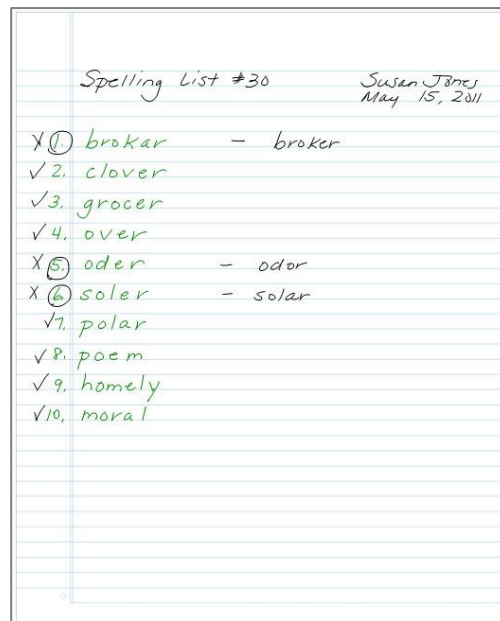 Spelling List #30 Susan Jones
May 15, 2011
X 1. brokar - broker
✓ 2. clover
✓ 3. grocer
✓ 4. over
X 5. oder - odor
X 6. soler - solar
✓ 7. polar
✓ 8. poem
✓ 9. homely
✓ 10. moral